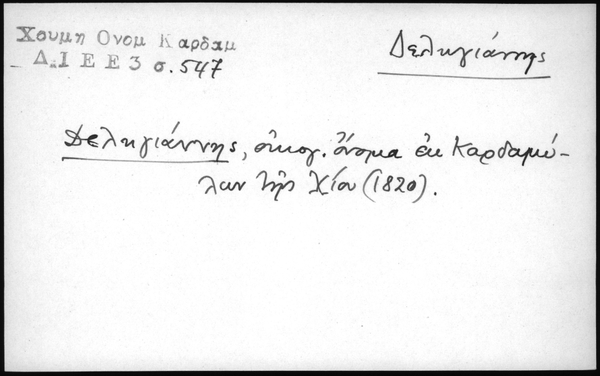 Χουμη Ονομ Καρδαμ
Δ. Ι Ε Ε 3 σ. 547
Δεληγιάννης
Δεληγιάννης, οἰκογ. ὄνομα ἐκ Καρδαμύ-
λων τῆς Χίου (1820).